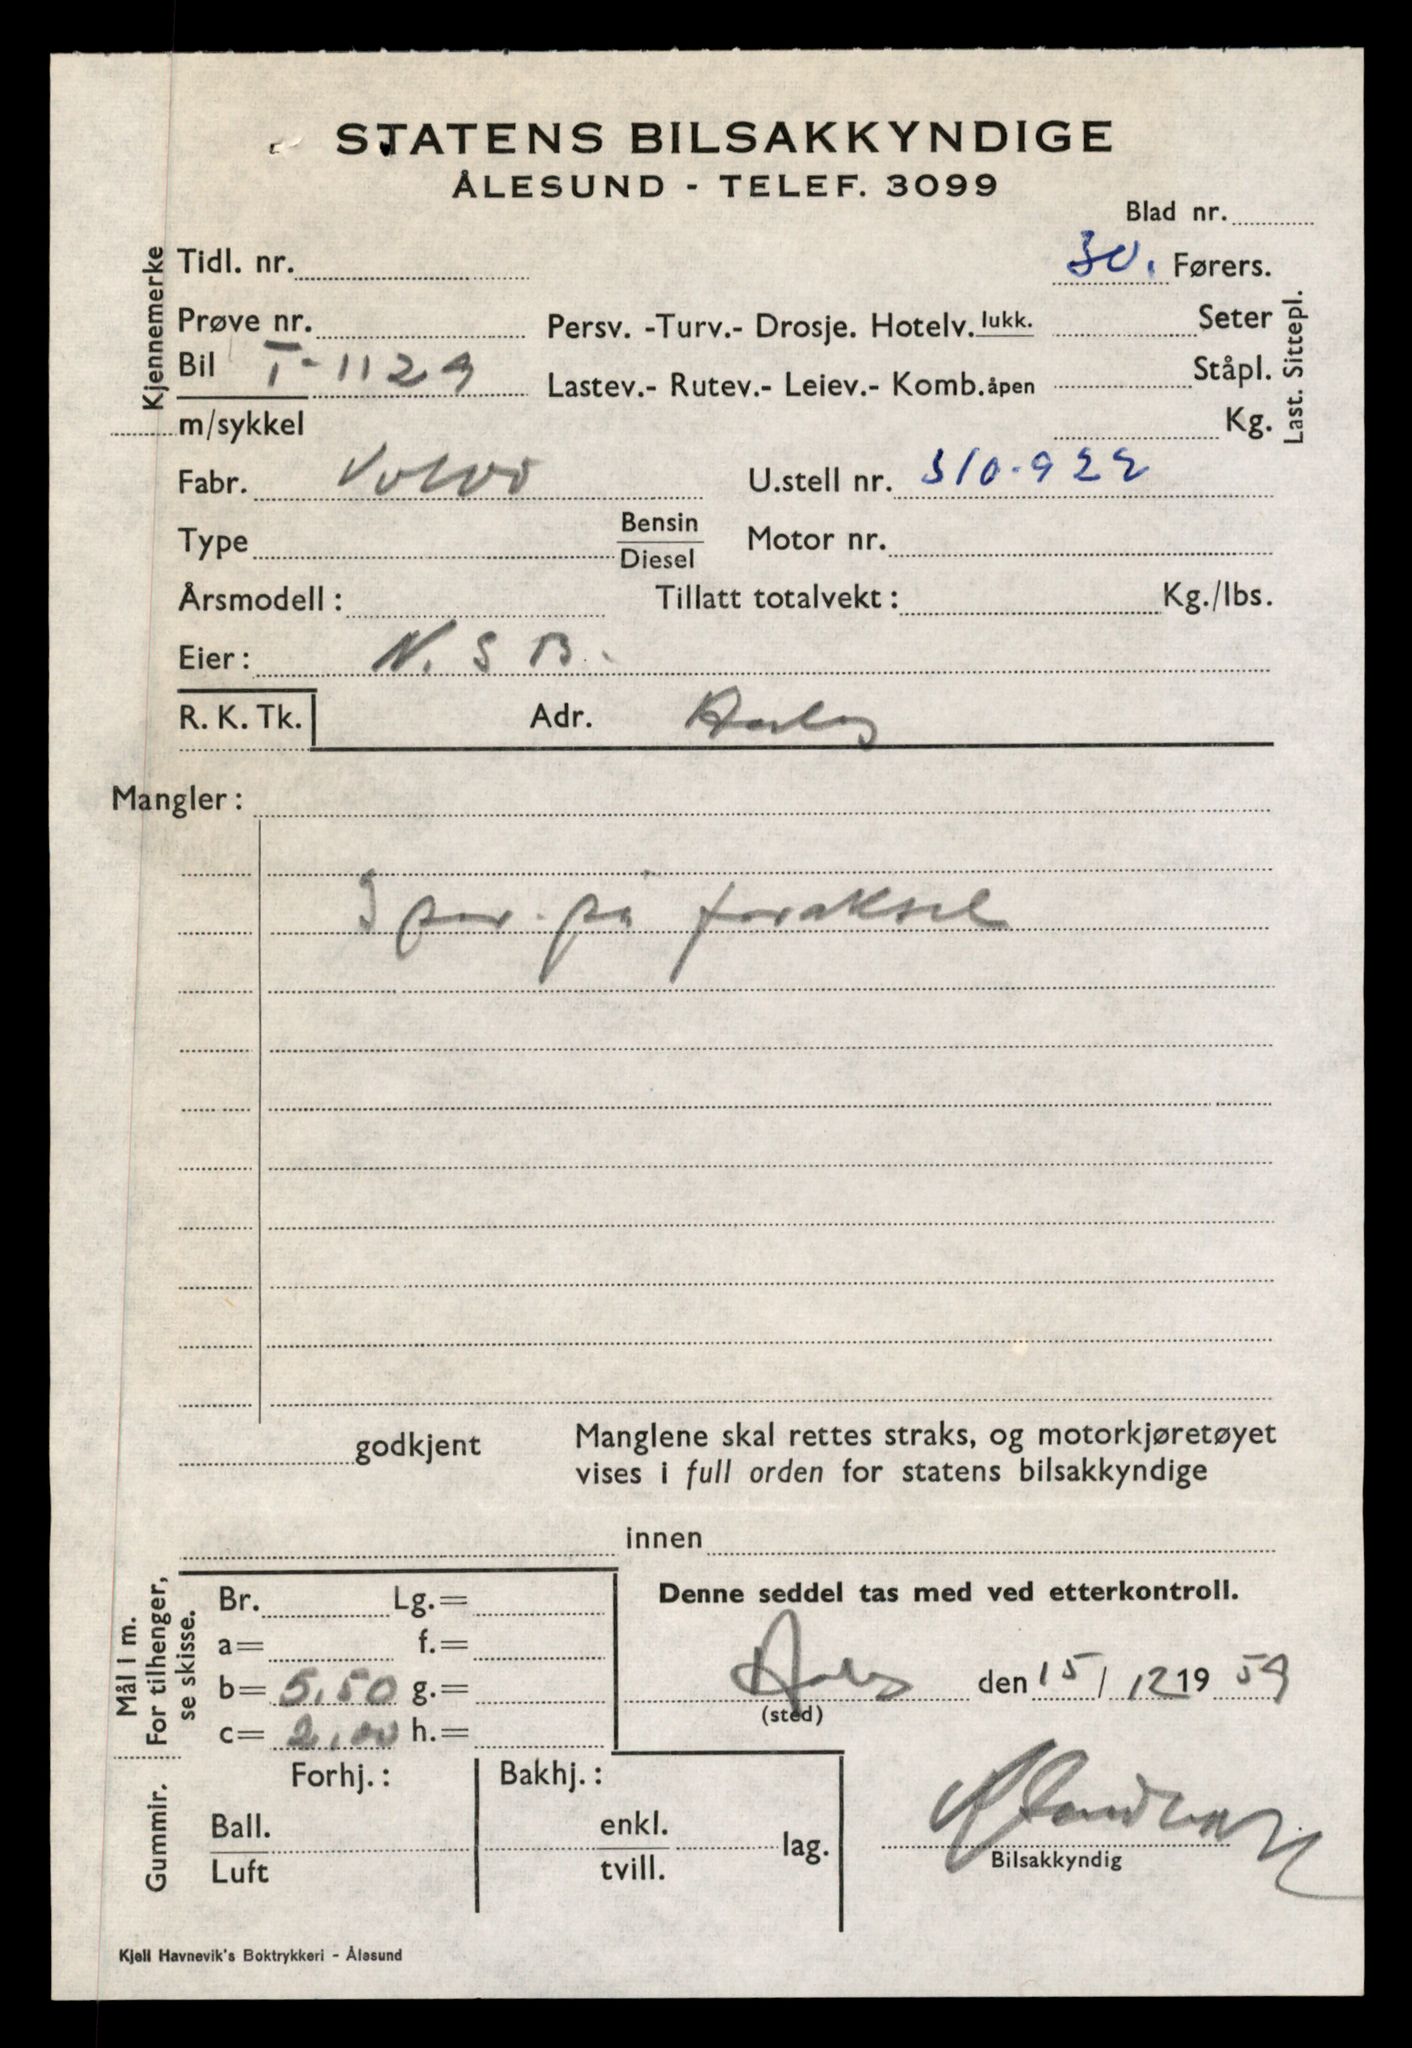 STATENS BILSAKKYNDIGE
ÅLESUND - TELEF. 3099
Blad nr.
Kjennemerke
Tidl. nr.
30. Førers.
Prøve nr.
Persv. -Turv.- Drosje. Hotelv. lukk.
Seter
Bil T-1129
Lastev.- Rutev.- Leiev.- Komb. åpen
Ståpl.
Last. Sittepl.
m/sykkel
Kg.
Fabr. Volvo
U.stell nr. 310-922
Type
Bensin
Diesel
Motor nr.
Årsmodell:
Tillatt totalvekt: Kg./lbs.
Eier: N.S.B.
R. K. Tk.
Adr.
Mangler:
på foraksel
godkjent
Manglene skal rettes straks, og motorkjøretøyet
vises i full orden for statens bilsakkyndige
innen
Mål i m.
For tilhenger,
se skisse.
Br. Lg.=
a= f.=
b= 5,50 g.=
c= 2,00 h.=
Denne seddel tas med ved etterkontroll.
den 15/12 19 59
(sted)
Gummir.
Forhj.:
Bakhj.:
Ball.
Luft
enkl.
tvill.
lag.
Bilsakkyndig
Kjell Havnevik's Boktrykkeri - Ålesund